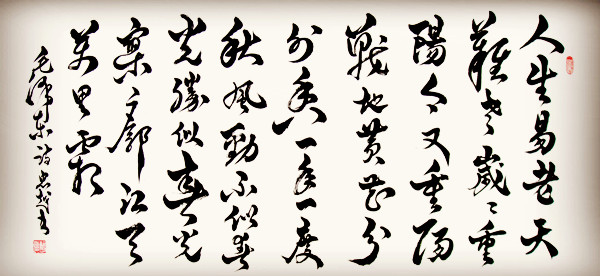 人生易老天
難老歲々重
陽今又重陽
戰地黄花分
外香一年一度
秋風勁不似春
光勝似春光
寥廓江天
萬里霜
毛澤東詩